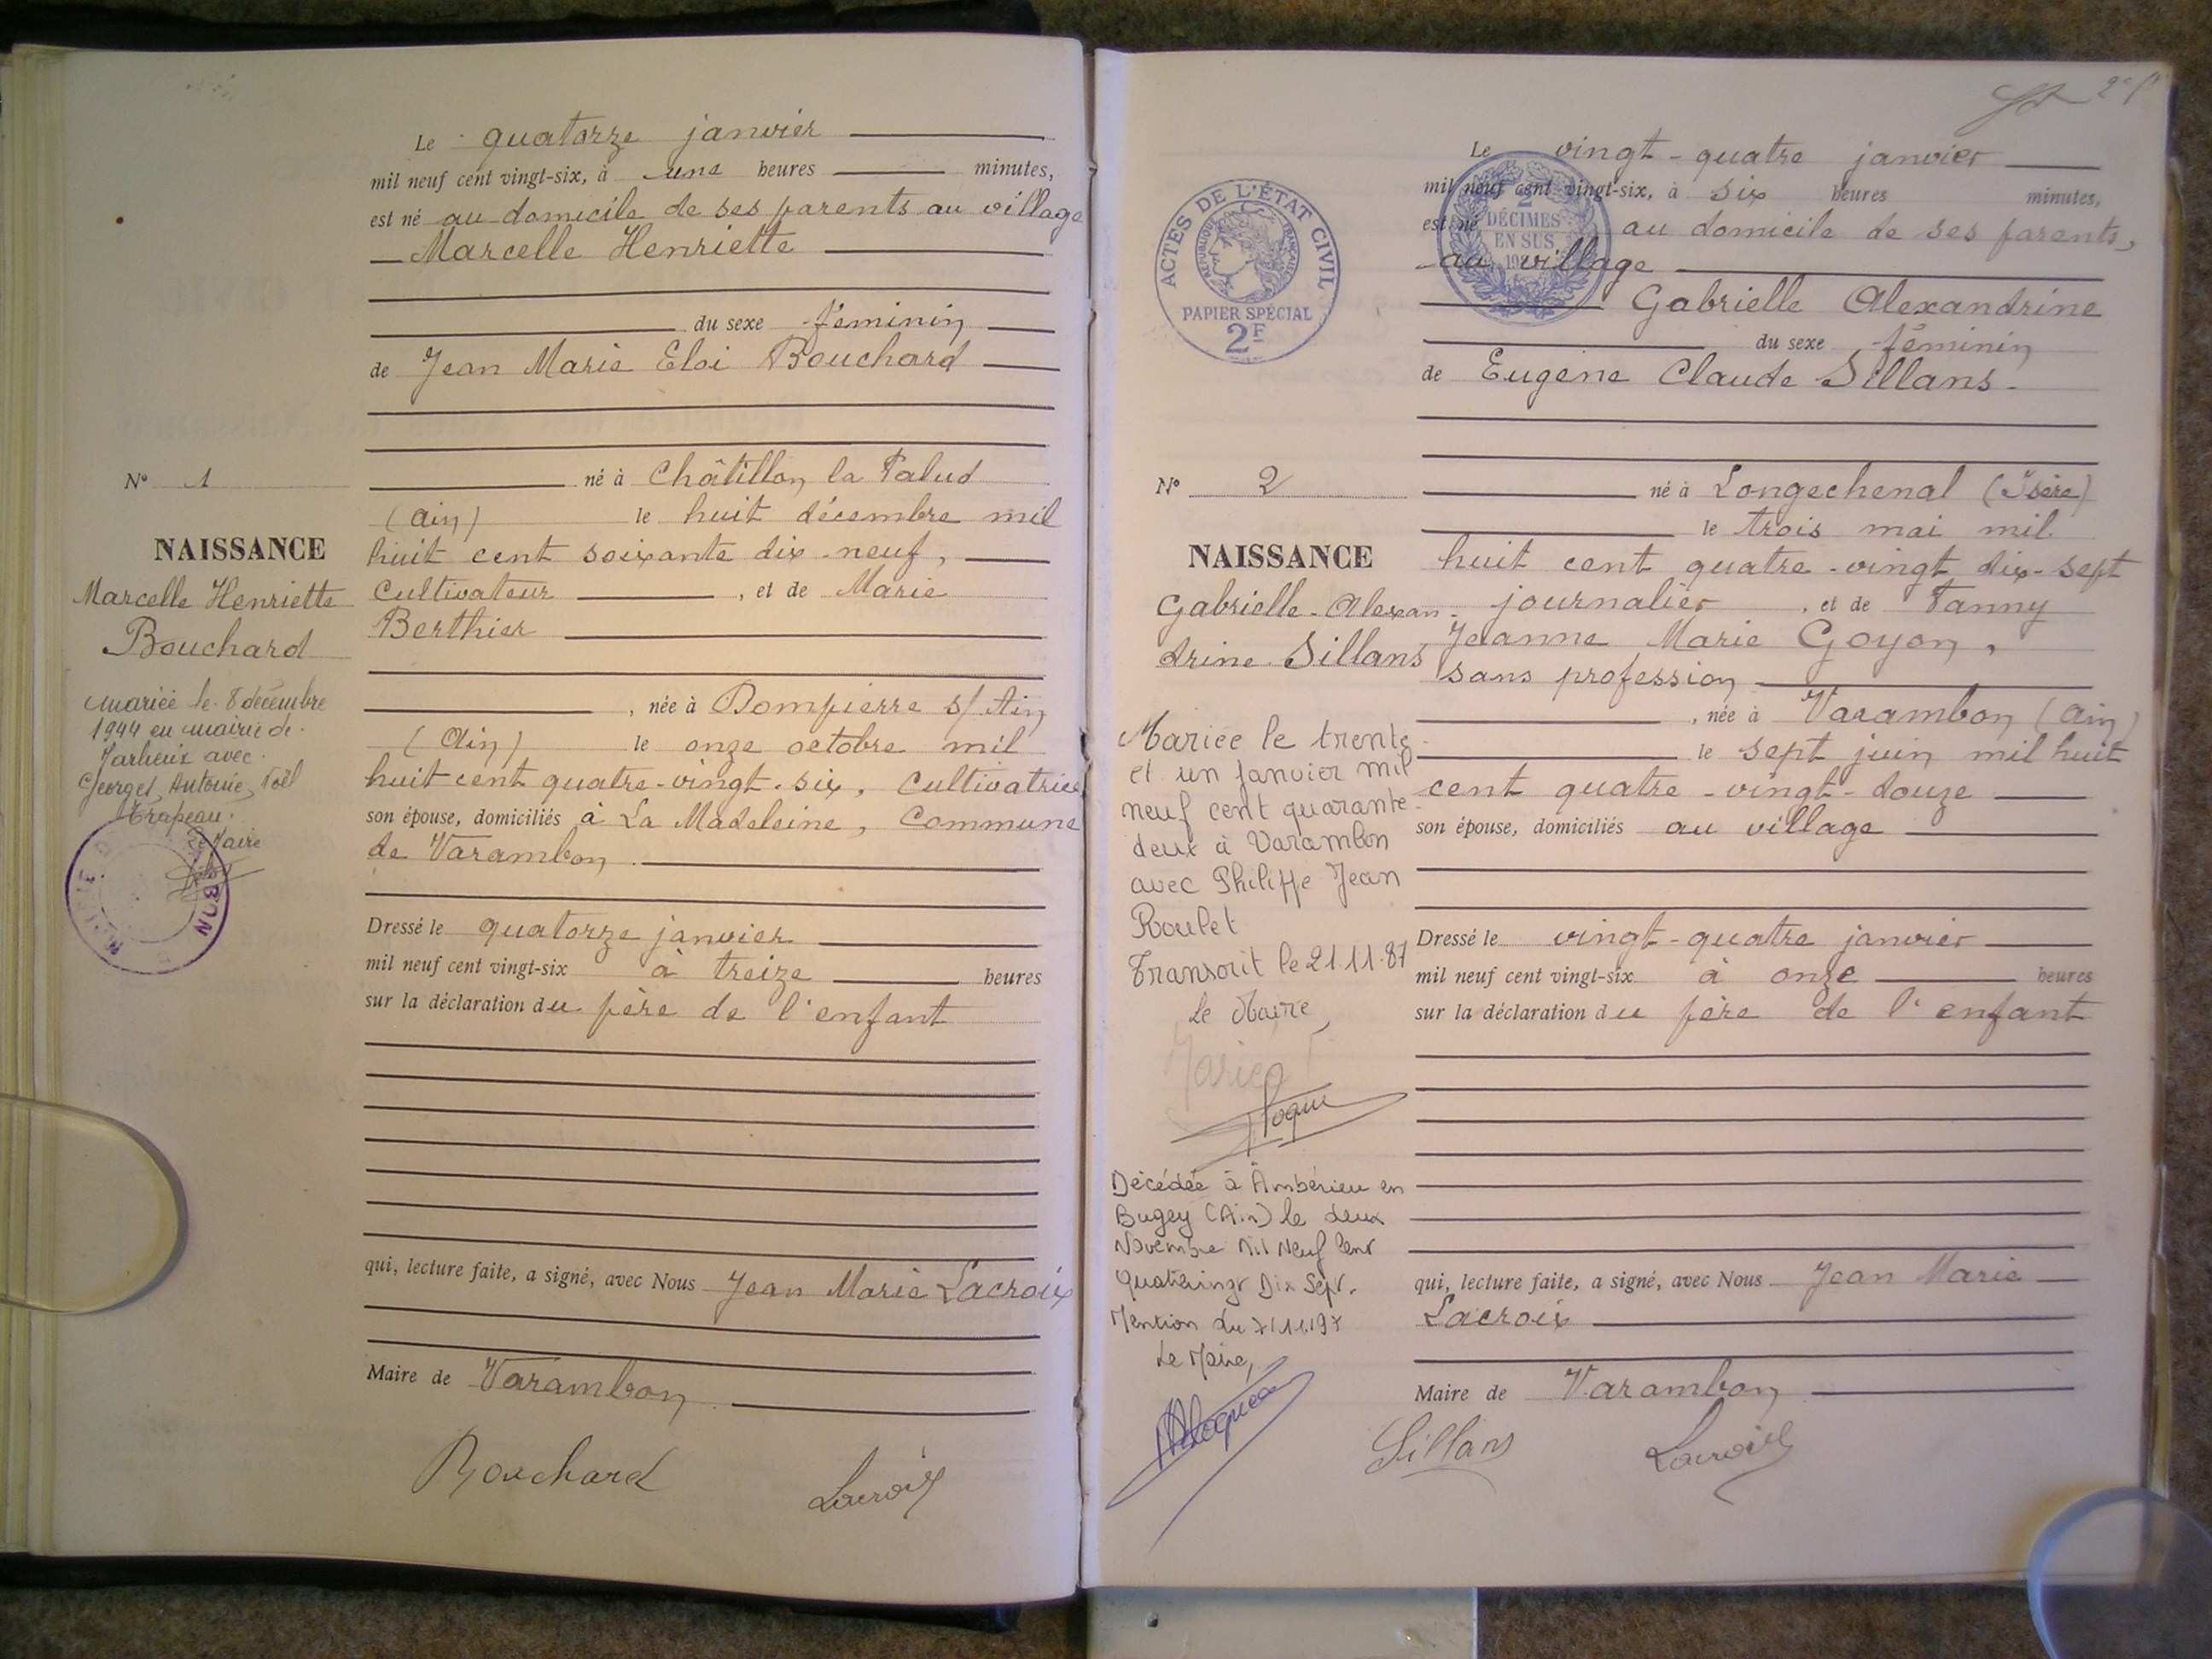 Le quatorze janvier
mil neuf cent vingt-six, à une heures minutes,
est né au domicile de ses parents au village
Marcelle Henriette
du sexe féminin
de Jean Marie Eloi Bouchard
né à Châtillon la Palud
(Ain) le huit décembre mil
huit cent soixante dix-neuf,
Cultivateur , et de Marie
Berthier
, née à Dompierre s/ Ain
(Ain) le onze octobre mil
huit cent quatre-vingt-six, Cultivatrice
son épouse, domiciliés à La Madeleine, Commune
de Varambon
Dressé le quatorze janvier
mil neuf cent vingt-six à treize heures
sur la déclaration du père de l'enfant
qui, lecture faite, a signé, avec Nous Jean Marie Lacroix
Maire de Varambon
Bouchard Lacroix
N° 1
NAISSANCE
Marcelle Henriette
Bouchard
Mariée le 8 décembre
1944 en mairie de
avec
Georges, Antoine, Noël
Trapeau.
Le Maire
2
Le vingt-quatre janvier
mil neuf cent vingt-six, à six heures minutes,
est né au domicile de ses parents,
au village
Gabrielle Alexandrine
du sexe féminin
de Eugène Claude Sillans
né à Longechenal (Isère)
le trois mai mil
huit cent quatre-vingt dix-sept
journalier , et de Fanny
Jeanne Marie Goyon,
sans profession
, née à Varambon (Ain)
le sept juin mil huit
cent quatre-vingt-douze
son épouse, domiciliés au village
Dressé le vingt-quatre janvier
mil neuf cent vingt-six à onze heures
sur la déclaration du père de l'enfant
qui, lecture faite, a signé, avec Nous Jean Marie
Lacroix
Maire de Varambon
Sillans Lacroix
ACTES DE L'ÉTAT CIVIL
RÉPUBLIQUE FRANÇAISE
PAPIER SPÉCIAL
2F
2
DÉCIMES
EN SUS
N° 2
NAISSANCE
Gabrielle-Alexan-
drine Sillans
Mariée le trente
et un janvier mil
neuf cent quarante
deux à Varambon
avec Philippe Jean
Roulet
Transcrit le 21.11.87
Le Maire,
Décédée à Ambérieu en
Bugey (Ain) le deux
Novembre Mil Neuf Cent
Quatrevingt Dix Sept.
Mention du 7/11/97
Le Maire,